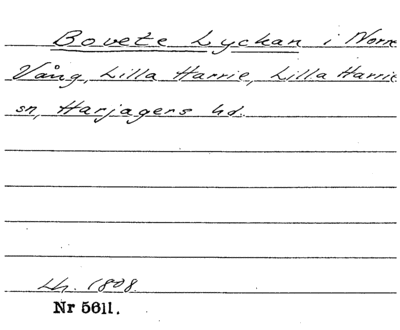 Bovete Lyckan i Norre
Vång, Lilla Harrie, Lilla Harrie
sn, Harjagers hd.
Lh. 1808.
Nr 5611.